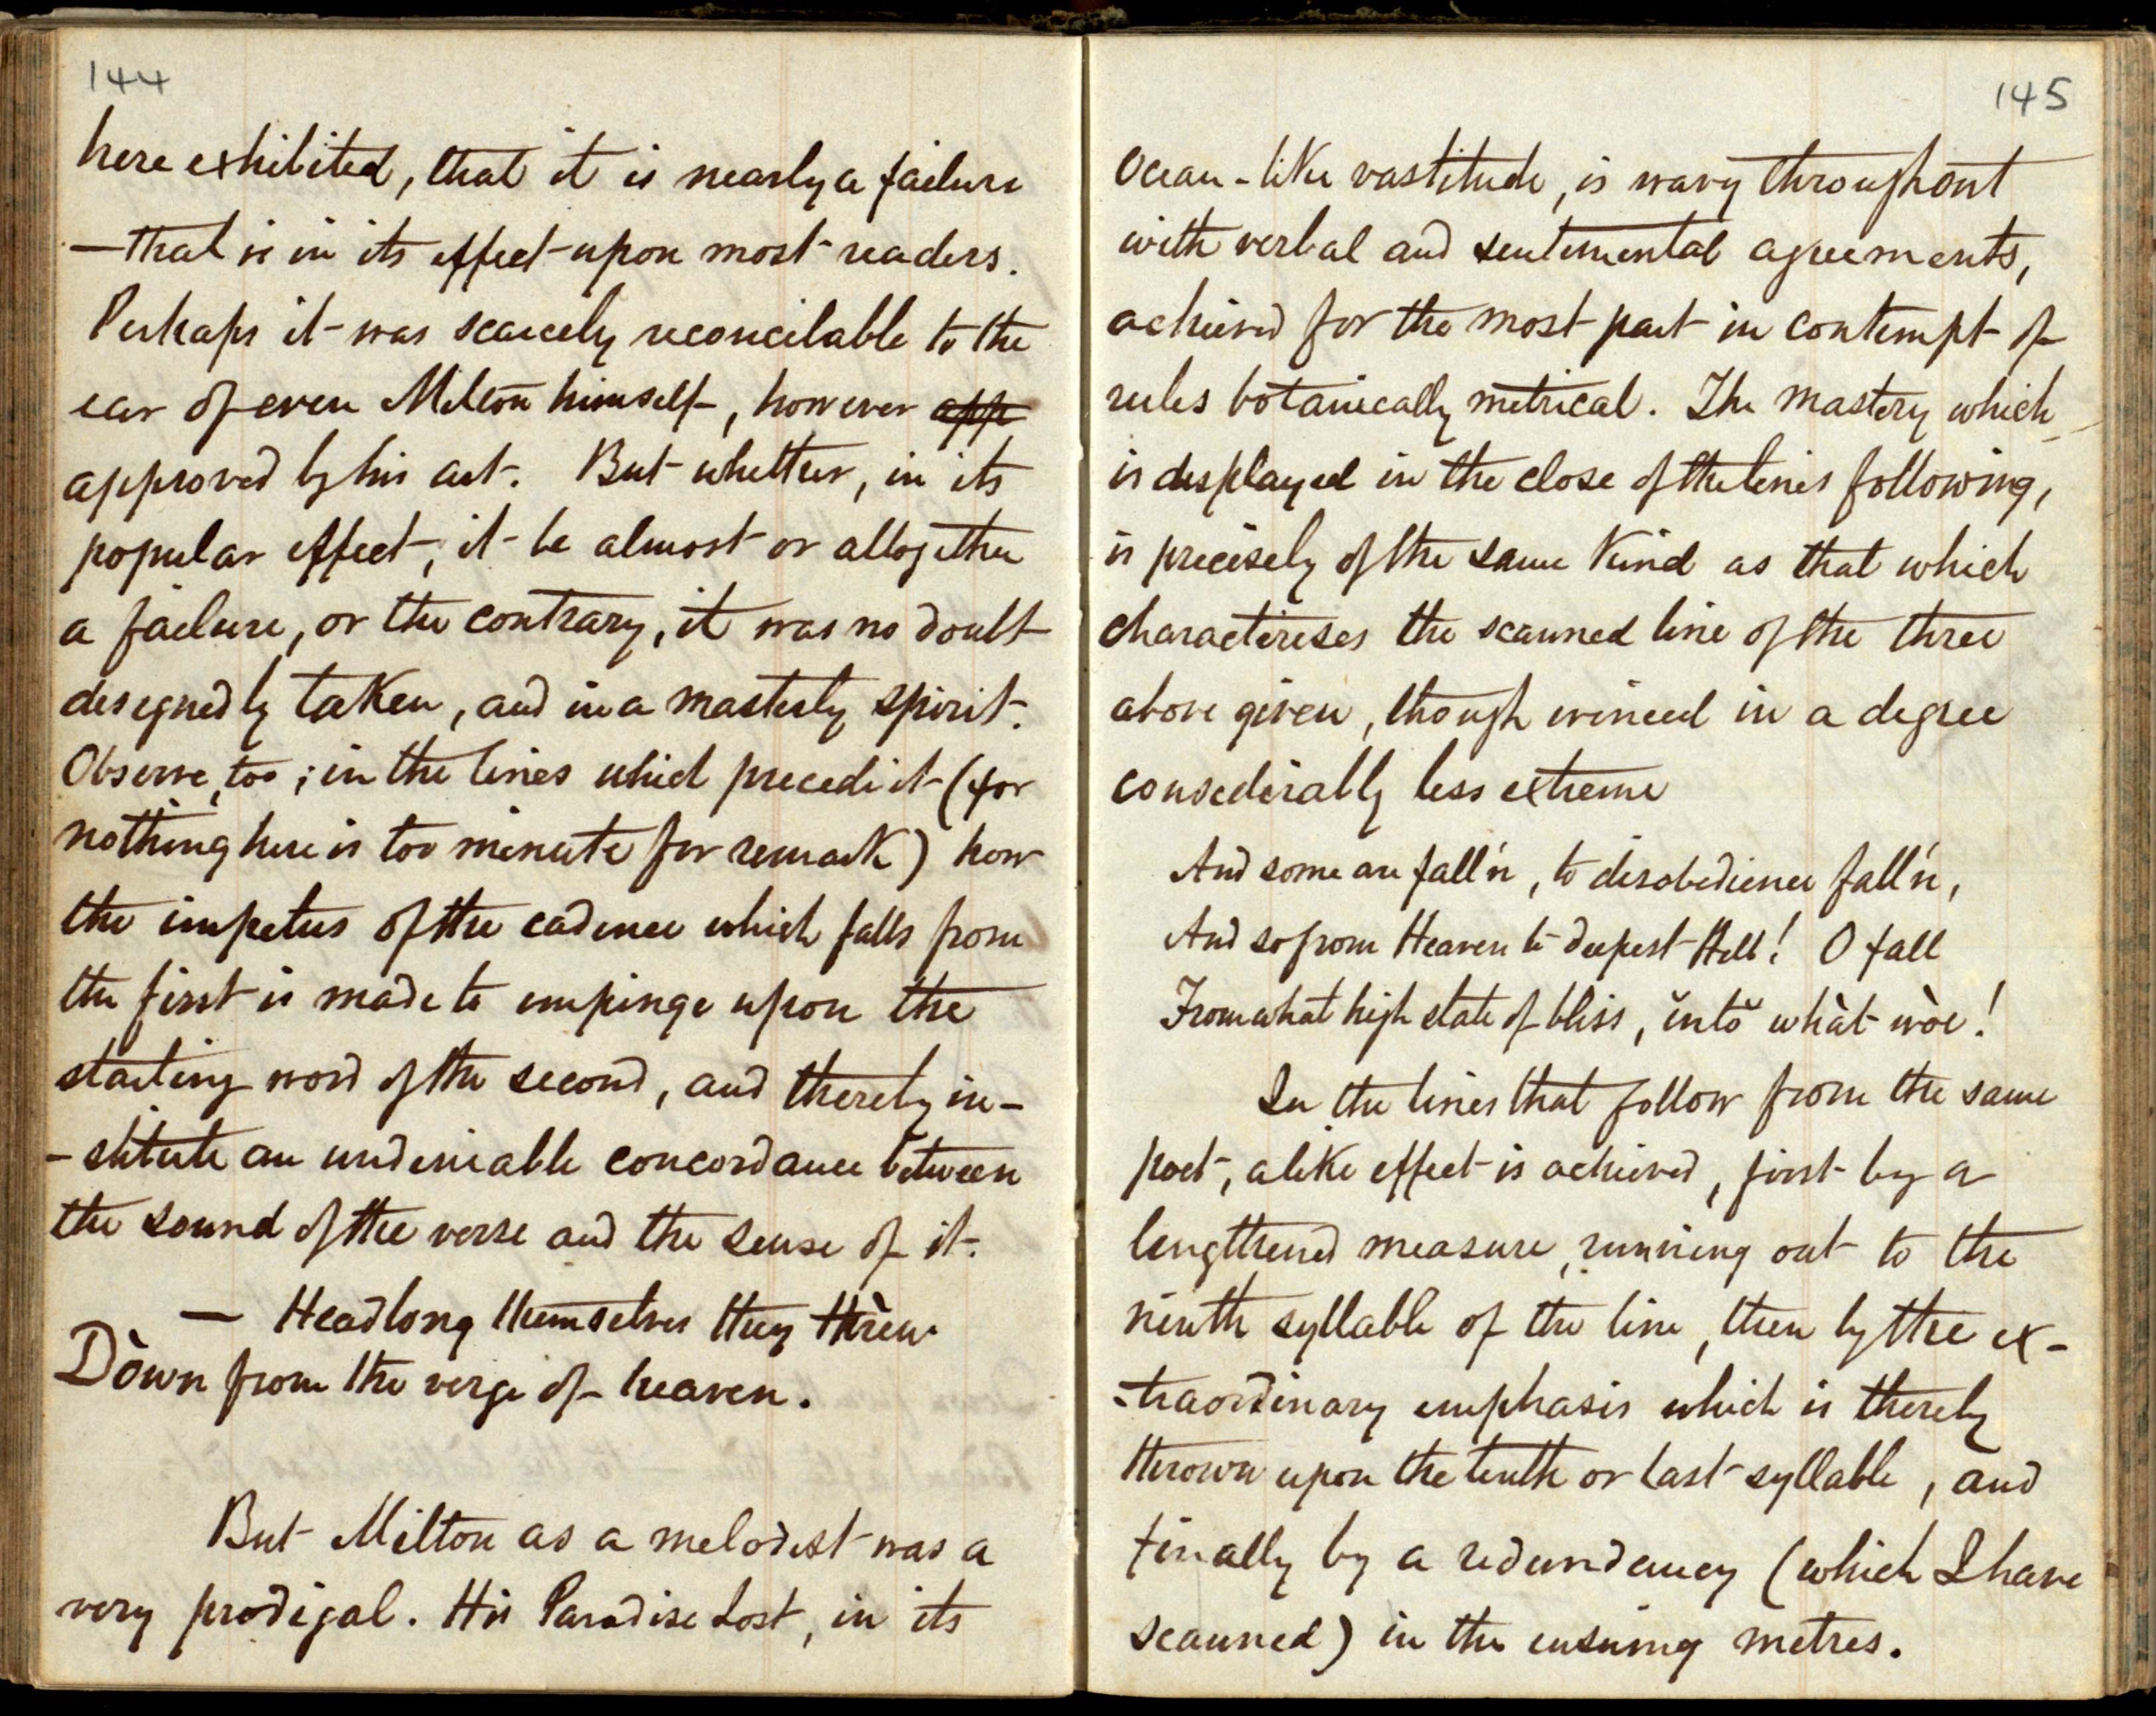 144
here exhibited, that it is nearly a failure
—that is in its effect upon most readers.
Perhaps it was scarcely reconcilable to the
ear of even Milton himself, however app
approved by his art. But whether, in its
popular effect, it be almost or altogether
a failure, or the contrary, it was no doubt
designedly taken, and in a masterly spirit.
Observe, too; in the lines which precede it (for
nothing here is too minute for remark) how
the impetus of the cadence which falls from
the first is made to impinge upon the
starting word of the second, and thereby in-
-stitute an undeniable concordance between
the sound of the verse and the sense of it.
— Headlong themselves they thrèw
Dòwn from the verge of heaven.
But Milton as a melodist was a
very prodigal. His Paradise Lost, in its
145
Ocean-like vastitude, is wavy throughout
with verbal and sentimental agreements,
achieved for the most part in contempt of
rules botanically metrical. The mastery which
is displayed in the close of the lines following,
is precisely of the same kind as that which
characterises the scanned line of the three
above given, though evinced in a degree
considerably less extreme
And some are fall'n, to disobedience fall'n,
And so from Heaven to deepest Hell! O fall
From what high state of bliss, ĭntŏ whàt wòe!
In the lines that follow from the same
poet, a like effect is achieved, first by a
lengthened measure, running out to the
ninth syllable of the line, then by the ex-
-traordinary emphasis which is thereby
thrown upon the tenth or last syllable, and
finally by a redundancy (which I have
scanned) in the ensuing metres.